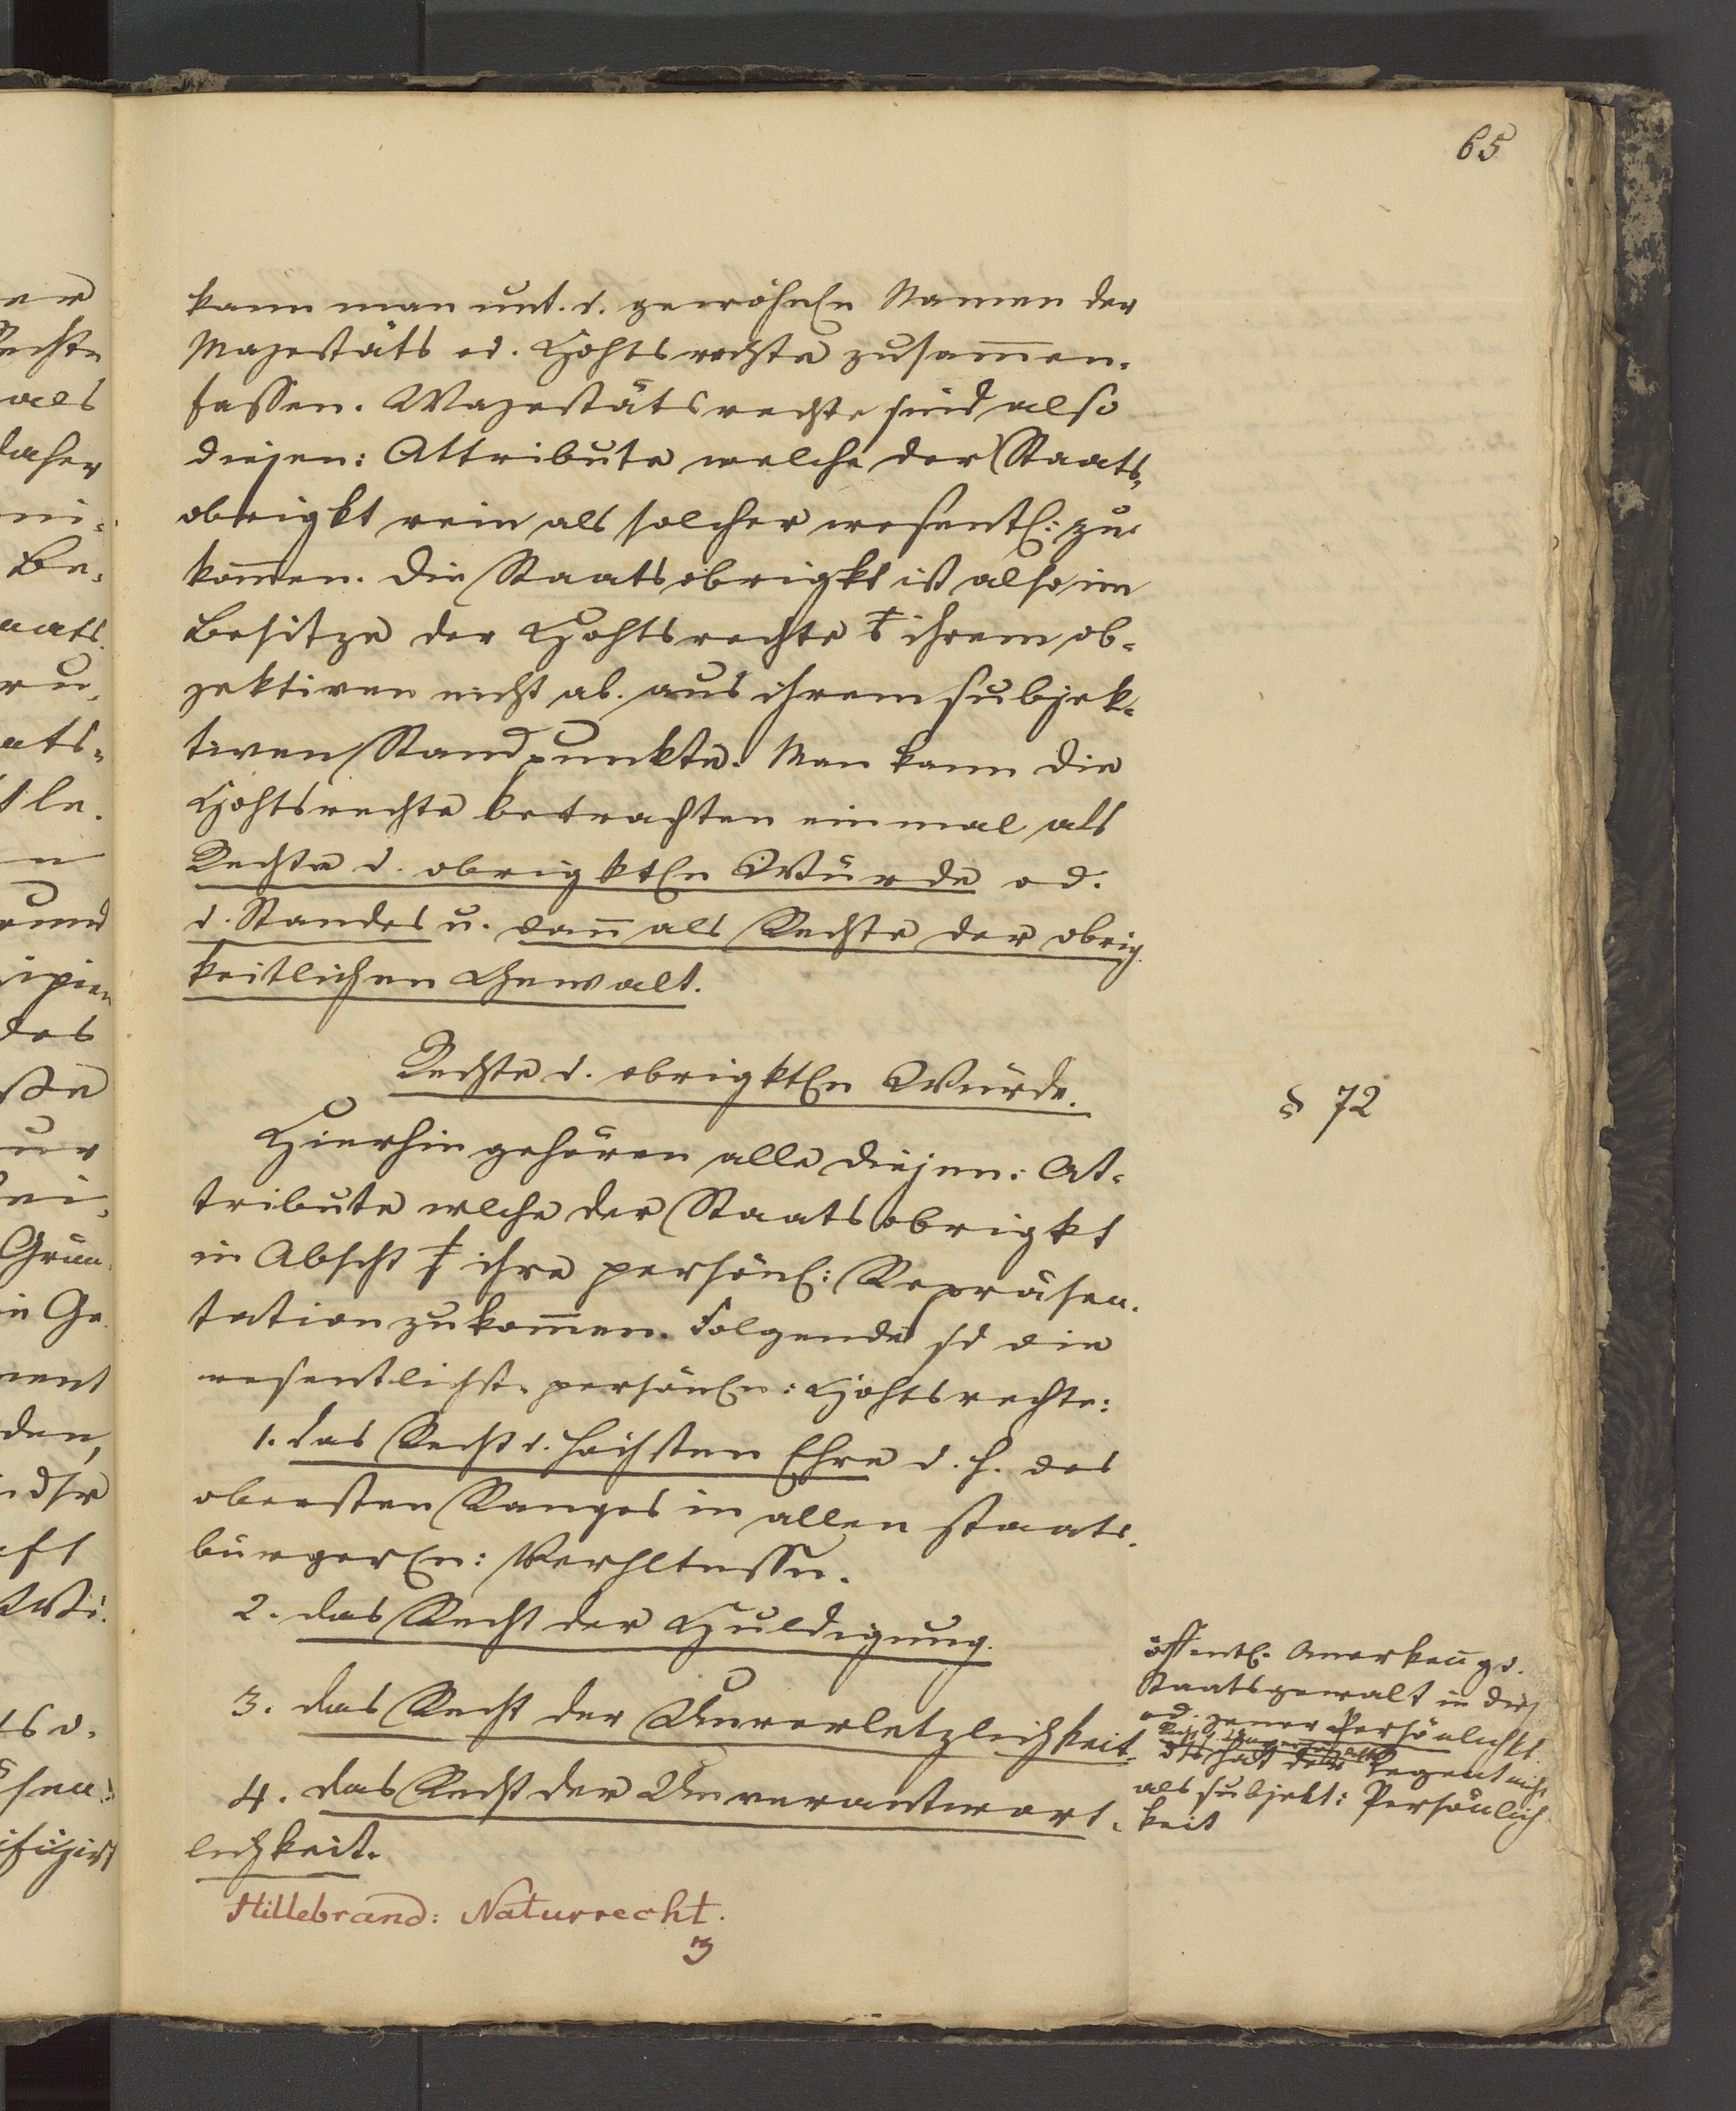 65
kann man unt. d. gewöhnln Namen der
Majestäts od. Hohtsrechte zusam̄en-
fassen. Majestätsrechte sind also
diejen: Attribute welche der Staats-
obrigkt rein als solcher wesentl: zu-
kom̄en. Die Staatsobrigkt ist also im
Besitze der Hohtsrechte ihrem ob-
jektiven nicht ab. aus ihrem subjek-
tiven Standpunkte. Man kann die
Hohtsrechte betrachten einmal als
Rechte d. obrigktln Würde od.
d. Standes u. dan̄ als Rechte der obrig-
keitlichen Gewalt.
Rechte d. obrigktln Würde.
§ 72
Hierhin gehören alle diejen: At-
tribute wlche der Staatsobrigkt
in Absicht ihre persönl: Repräsen-
tation zukom̄en. Folgende sd die
wesentlichst. persönln: Hohtsrechte:
1. das Recht d. höchsten Ehre d. h. des
obersten Ranges in allen staats-
bürgerln: Verhltnssen.
2. das Recht der Huldigung.
3. das Recht der Unverletzlichkeit.
4. das Recht der Unverantwort-
lichkeit.
öffentl. Anerken̄g d.
Staatsgewalt in dies
od. jener Persönlichkt.
dies hat der Regent nicht
als subjekt: Persönlich-
keit
Hillebrand: Naturrecht.
3